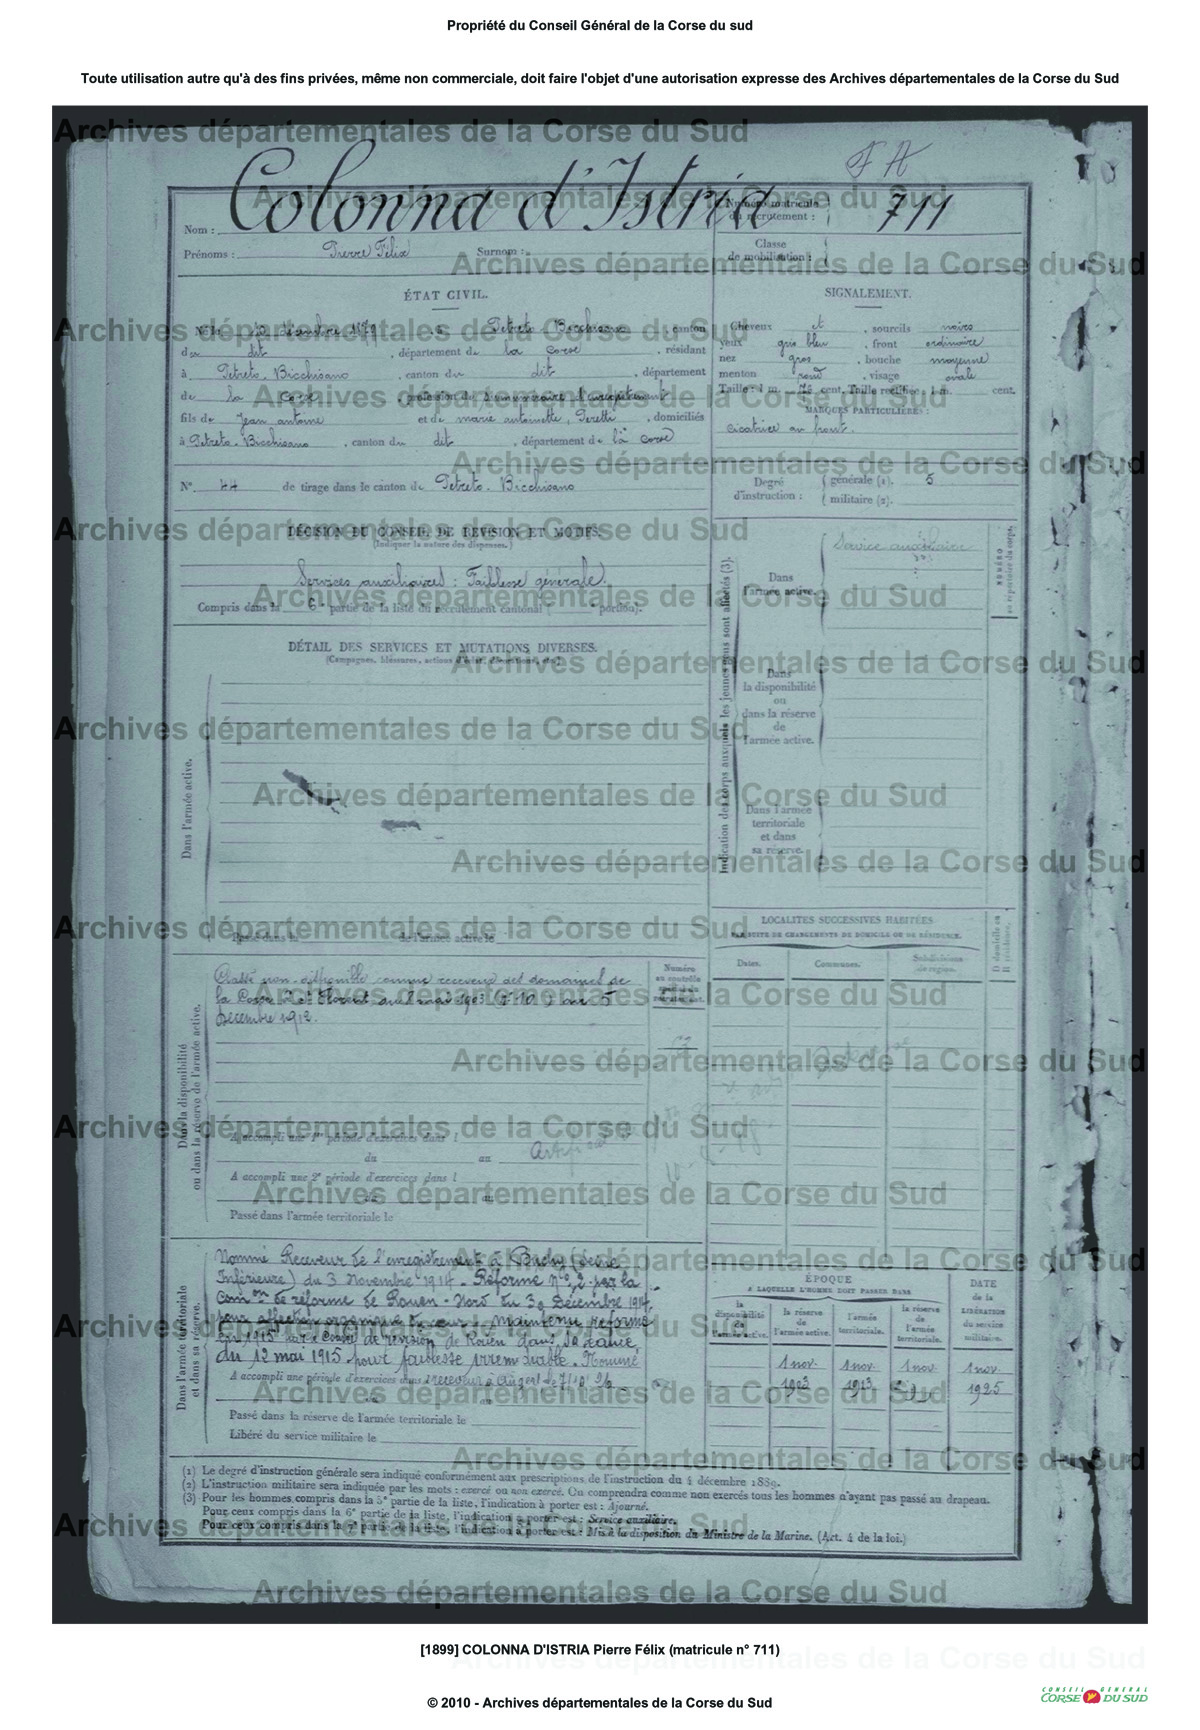 Propriété du Conseil Général de la Corse du sud
Toute utilisation autre qu'à des fins privées, même non commerciale, doit faire l'objet d'une autorisation expresse des Archives départementales de la Corse du Sud
Archives départementales de la Corse du Sud
F A
Nom : Colonna d'Istria
Numéro matricule du recrutement : 711
Prénoms : Pierre Félix Surnom :
Classe de mobilisation :
ÉTAT CIVIL.
Né le décembre 1879, à Petreto-Bicchisano, canton
du dit, département de la Corse, résidant
à Petreto-Bicchisano, canton du dit, département
de la Corse, profession de surnuméraire d'enregistrement
fils de Jean antoine et de marie antoinette, Peretti, domiciliés
à Petreto-Bicchisano, canton du dit, département de la Corse
N° 44 de tirage dans le canton de Petreto-Bicchisano
SIGNALEMENT.
Cheveux et, sourcils noirs
yeux gris bleu, front ordinaire
nez gros, bouche moyenne
menton rond, visage ovale
Taille : 1 m. cent. Taille rectifiée : 1 m. cent.
MARQUES PARTICULIÈRES :
cicatrice au front.
Degré d'instruction : générale (1). 5
militaire (2).
DÉCISION DU CONSEIL DE RÉVISION ET MOTIFS.
(Indiquer la nature des dispenses.)
Services auxiliaires : Faiblesse générale.
Compris dans la 6e partie de la liste du recrutement cantonal ( portion).
DÉTAIL DES SERVICES ET MUTATIONS DIVERSES.
(Campagnes, blessures, actions d'éclat, décorations, etc.)
Dans l'armée active.
Passé dans la de l'armée active le
Indication des corps auxquels les jeunes gens sont affectés (3).
Dans l'armée active. Service auxiliaire
Dans la disponibilité ou dans la réserve de l'armée active.
Dans l'armée territoriale et dans sa réserve.
NUMÉRO au répertoire du corps.
LOCALITÉS SUCCESSIVES HABITÉES
PAR SUITE DE CHANGEMENTS DE DOMICILE OU DE RÉSIDENCE.
Dates. Communes. Subdivisions de région. D domicile ou R résidence.
Dans la disponibilité ou dans la réserve de l'armée active.
Classé non-disponible comme receveur des domaines de
la Corse à St Florent au
Décembre 1912.
A accompli une 1re période d'exercices dans l
du au
A accompli une 2e période d'exercices dans l
du au
Passé dans l'armée territoriale le
Dans l'armée territoriale et dans sa réserve.
Nommé Receveur de l'enregistrement à Buchy (Seine
Inférieure) du 3 Novembre 1914. Réformé n° 2 par la
Comon de réforme de Rouen-Nord du 30 Décembre 1914,
pour affection organique du cœur, maintenu réformé
en 1915 par le Conseil de révision de Rouen dans sa séance
du 12 mai 1915 pour Nommé
A accompli une période d'exercices dans l receveur à
Passé dans la réserve de l'armée territoriale le
Libéré du service militaire le
ÉPOQUE
A LAQUELLE L'HOMME DOIT PASSER DANS
la disponibilité de l'armée active. la réserve de l'armée active. l'armée territoriale. la réserve de l'armée territoriale.
DATE de la LIBÉRATION du service militaire.
1 nov. 1903 1 nov. 1913 1 nov. 1 nov. 1925
(1) Le degré d'instruction générale sera indiqué conformément aux prescriptions de l'instruction du 4 décembre 1889.
(2) L'instruction militaire sera indiquée par les mots : exercé ou non exercé. On comprendra comme non exercés tous les hommes n'ayant pas passé au drapeau.
(3) Pour les hommes compris dans la 5e partie de la liste, l'indication à porter est : Ajourné.
Pour ceux compris dans la 6e partie de la liste, l'indication à porter est : Service auxiliaire.
Pour ceux compris dans la 7e partie de la liste, l'indication à porter est : Mis à la disposition du Ministre de la Marine. (Art. 4 de la loi.)
[1899] COLONNA D'ISTRIA Pierre Félix (matricule n° 711)
© 2010 - Archives départementales de la Corse du Sud
CONSEIL GÉNÉRAL
CORSE DU SUD